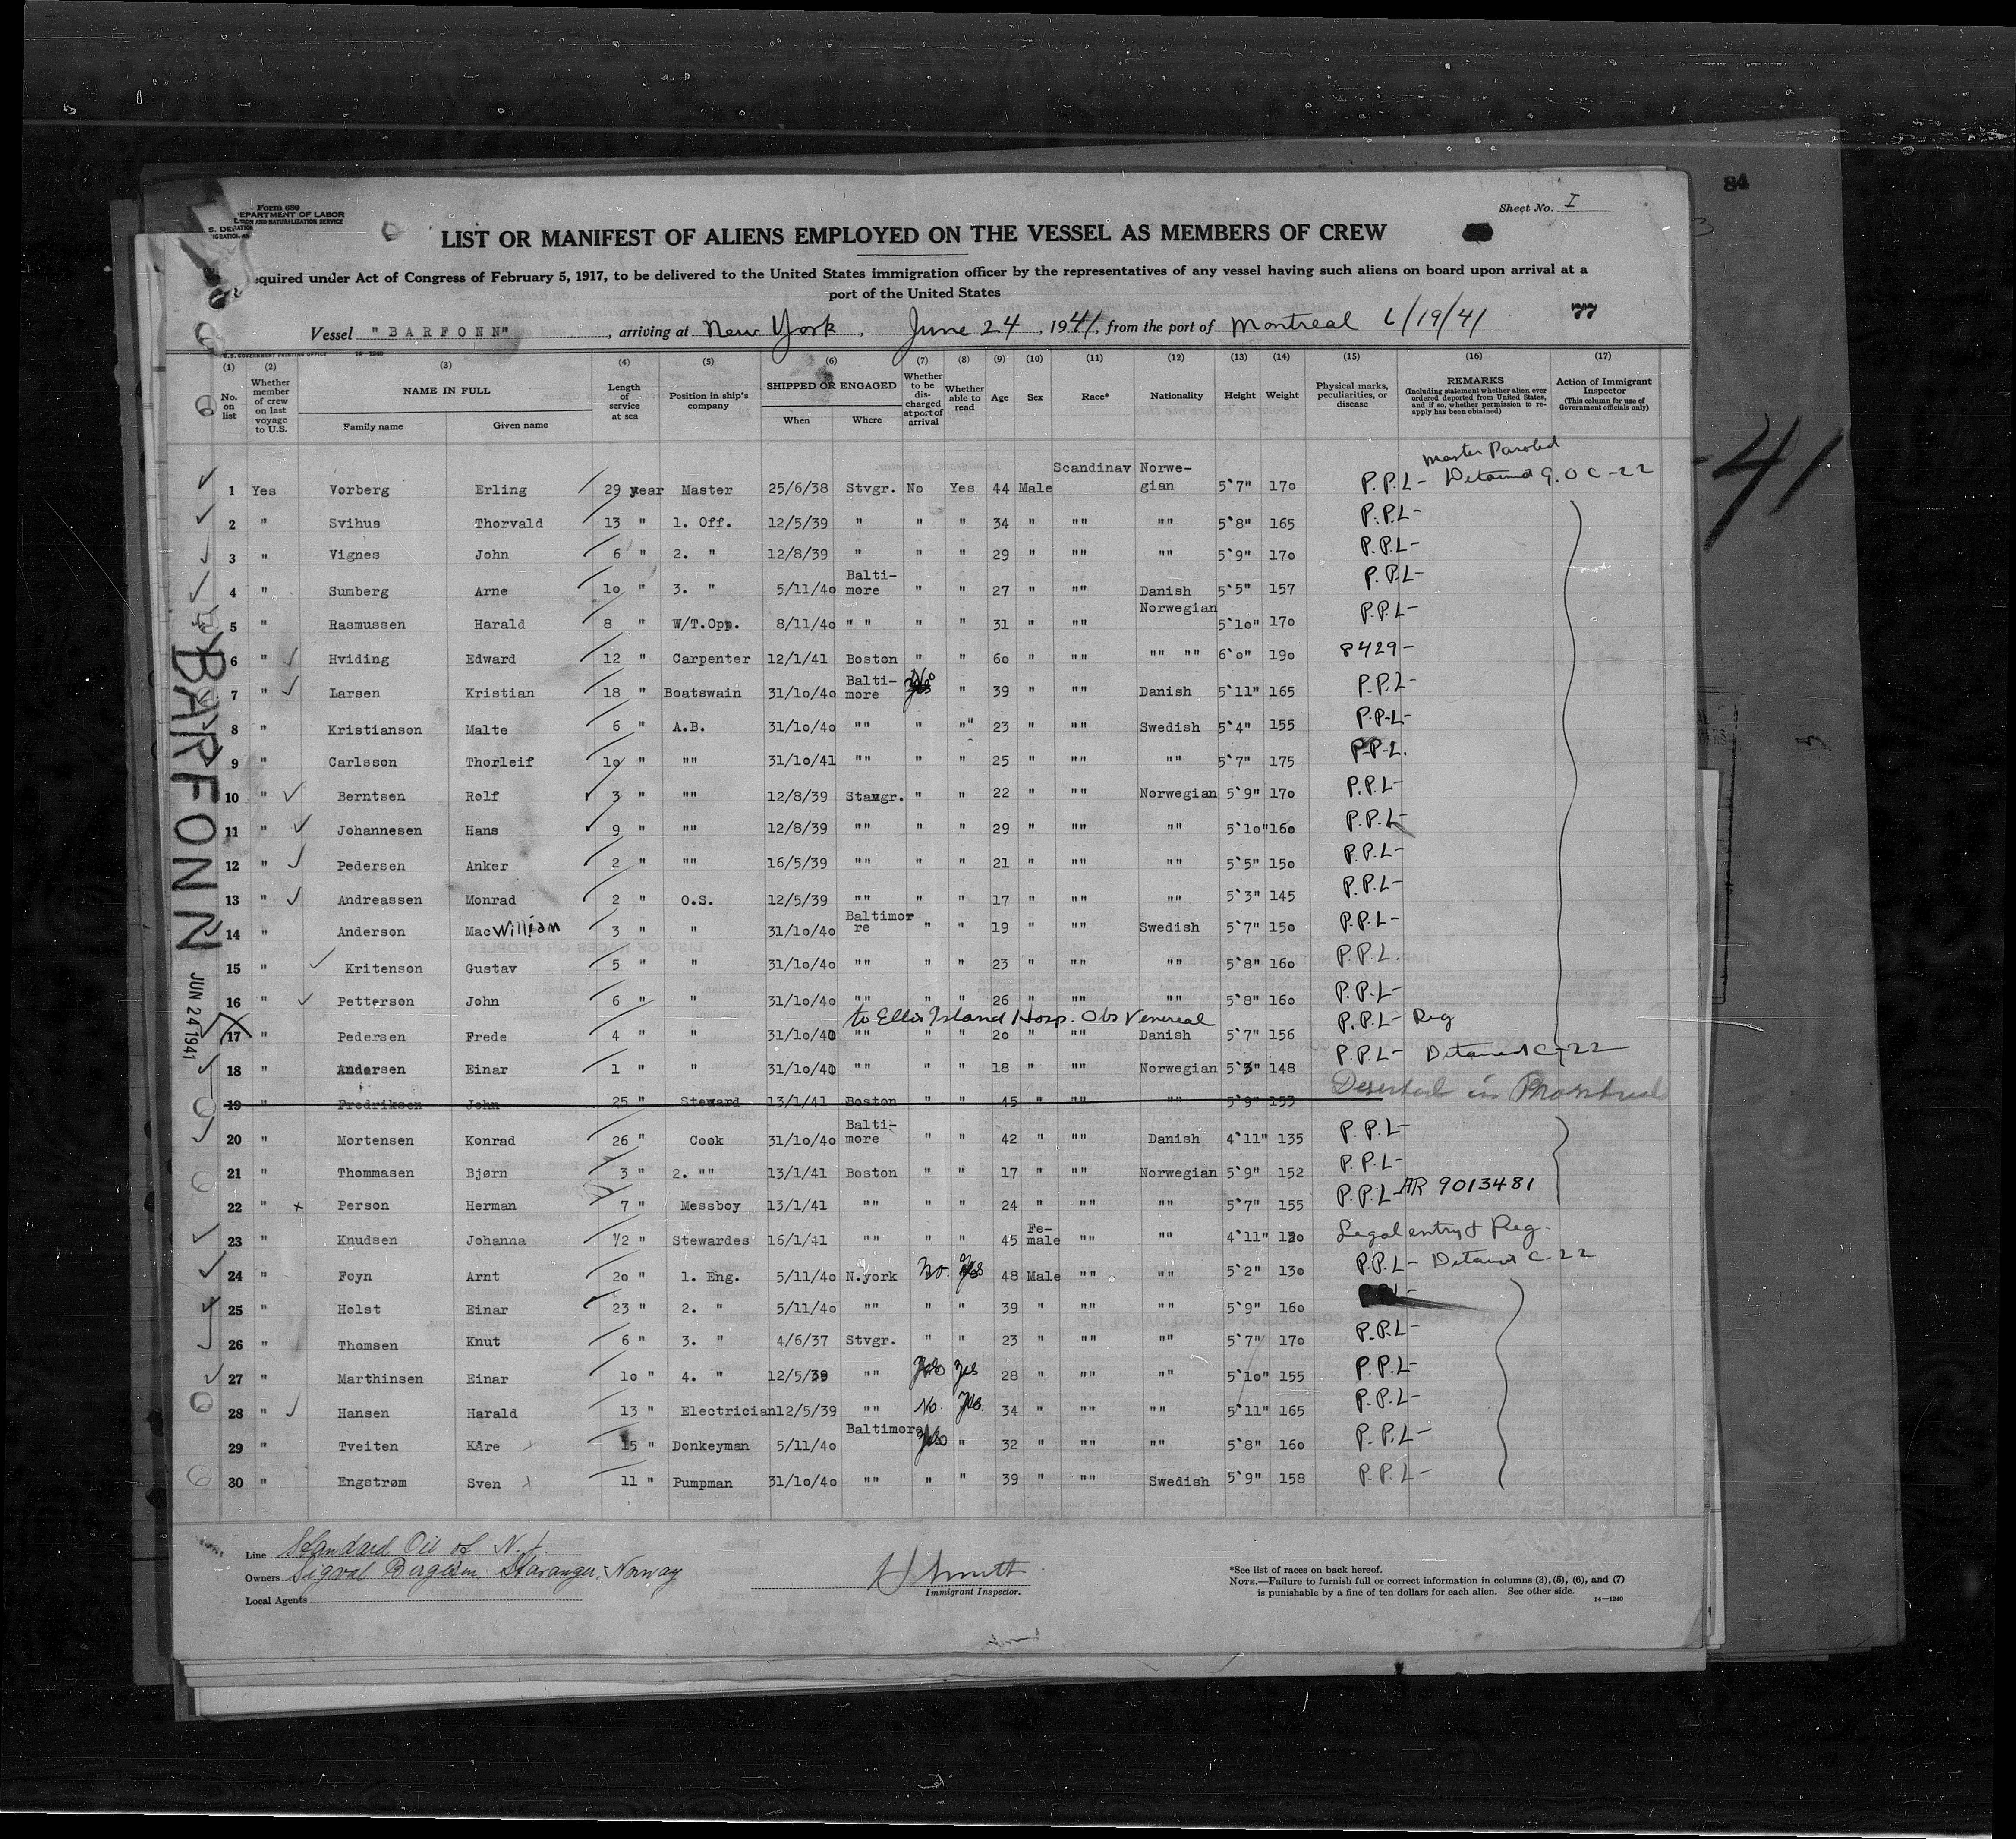 84
Form 680
DEPARTMENT OF LABOR
Sheet No. I
LIST OR MANIFEST OF ALIENS EMPLOYED ON THE VESSEL AS MEMBERS OF CREW
equired under Act of Congress of February 5, 1917, to be delivered to the United States immigration officer by the representatives of any vessel having such aliens on board upon arrival at a
port of the United States
Vessel "BARFONN", arriving at New York, June 24, 1941, from the port of Montreal 6/19/41 77
U.S. GOVERNMENT PRINTING OFFICE 14-1240
(1) (2) (3) (4) (5) (6) (7) (8) (9) (10) (11) (12) (13) (14) (15) (16) (17)
No. on list
Whether member of crew on last voyage to U.S.
NAME IN FULL
Family name Given name
Length of service at sea
Position in ship's company
SHIPPED OR ENGAGED
When Where
Whether to be discharged at port of arrival
Whether able to read
Age
Sex
Race*
Nationality
Height
Weight
Physical marks, peculiarities, or disease
REMARKS
(Including statement whether alien ever ordered deported from United States, and if so, whether permission to re-apply has been obtained)
Action of Immigrant Inspector
(This column for use of Government officials only)
Master Paroled
1 Yes Vorberg Erling 29 year Master 25/6/38 Stvgr. No Yes 44 Male Scandinav Norwe-gian 5'7" 170 P.P.L- Detained G.O C-22
2 " Svihus Thorvald 13 " 1. Off. 12/5/39 " " " 34 " "" "" 5'8" 165 P.P.L-
3 " Vignes John 6 " 2. " 12/8/39 " " " 29 " "" "" 5'9" 170 P.P.L-
4 " Sumberg Arne 10 " 3. " 5/11/40 Balti-more " " 27 " "" Danish 5'5" 157 P.P.L-
5 " Rasmussen Harald 8 " W/T.Opp. 8/11/40 " " " " 31 " "" Norwegian 5'10" 170 P.P.L-
6 " Hviding Edward 12 " Carpenter 12/1/41 Boston " " 60 " "" "" "" 6'0" 190 8429-
7 " Larsen Kristian 18 " Boatswain 31/10/40 Balti-more No " 39 " "" Danish 5'11" 165 P.P.L-
8 " Kristianson Malte 6 " A.B. 31/10/40 "" " "" 23 " "" Swedish 5'4" 155 P.P.L-
9 " Carlsson Thorleif 10 " "" 31/10/41 "" " " 25 " "" "" 5'7" 175 P.P.L.
10 " Berntsen Rolf 3 " "" 12/8/39 Stavgr. " " 22 " "" Norwegian 5'9" 170 P.P.L-
11 " Johannesen Hans 9 " "" 12/8/39 "" " " 29 " "" "" 5'10" 160 P.P.L-
12 " Pedersen Anker 2 " "" 16/5/39 "" " " 21 " "" "" 5'5" 150 P.P.L-
13 " Andreassen Monrad 2 " O.S. 12/5/39 "" " " 17 " "" "" 5'3" 145 P.P.L-
14 " Anderson Mac William 3 " " 31/10/40 Baltimor re " " 19 " "" Swedish 5'7" 150 P.P.L-
15 " Kritenson Gustav 5 " " 31/10/40 "" " " 23 " "" "" 5'8" 160 P.P.L.
16 " Petterson John 6 " " 31/10/40 "" " " 26 " "" "" 5'8" 160 P.P.L-
to Ellis Island Hosp. Obs Venereal
17 " Pedersen Frede 4 " " 31/10/40 "" 20 " "" Danish 5'7" 156 P.P.L- Reg
18 " Andersen Einar 1 " " 31/10/40 "" " " 18 " "" Norwegian 5'3" 148 P.P.L- Detained C-22
19 " Fredriksen John 25 " Steward 13/1/41 Boston " " 45 " "" "" 5'9" 153 Deserted in Montreal
20 " Mortensen Konrad 26 " Cook 31/10/40 Balti-more " " 42 " "" Danish 4'11" 135 P.P.L-
21 " Thommasen Bjørn 3 " 2. "" 13/1/41 Boston " " 17 " "" Norwegian 5'9" 152 P.P.L-
22 " Person Herman 7 " Messboy 13/1/41 "" " " 24 " "" "" 5'7" 155 P.P.L- AR 9013481
23 " Knudsen Johanna 1/2 " Stewardes 16/1/41 "" " " 45 Fe-male "" "" 4'11" 120 Legal entry & Reg.
24 " Foyn Arnt 20 " 1. Eng. 5/11/40 N.york No. Yes 48 Male "" "" 5'2" 130 P.P.L- Detained C-22
25 " Holst Einar 23 " 2. " 5/11/40 "" " " 39 " "" "" 5'9" 160
26 " Thomsen Knut 6 " 3. " 4/6/37 Stvgr. " " 23 " "" "" 5'7" 170 P.P.L-
27 " Marthinsen Einar 10 " 4. " 12/5/39 "" Yes 28 " "" "" 5'10" 155 P.P.L-
28 " Hansen Harald 13 " Electrician 12/5/39 "" No. Yes. 34 " "" "" 5'11" 165 P.P.L-
29 " Tveiten Kåre 15 " Donkeyman 5/11/40 Baltimore " 32 " "" "" 5'8" 160 P.P.L-
30 " Engstrøm Sven 11 " Pumpman 31/10/40 "" " " 39 " "" Swedish 5'9" 158 P.P.L-
BARFONN
JUN 24 1941
-41
Line Standard Oil of N.J.
Owners Sigval Bergesen, Stavanger, Norway
Local Agents
Immigrant Inspector.
*See list of races on back hereof.
NOTE.—Failure to furnish full or correct information in columns (3), (5), (6), and (7)
is punishable by a fine of ten dollars for each alien. See other side.
14—1240